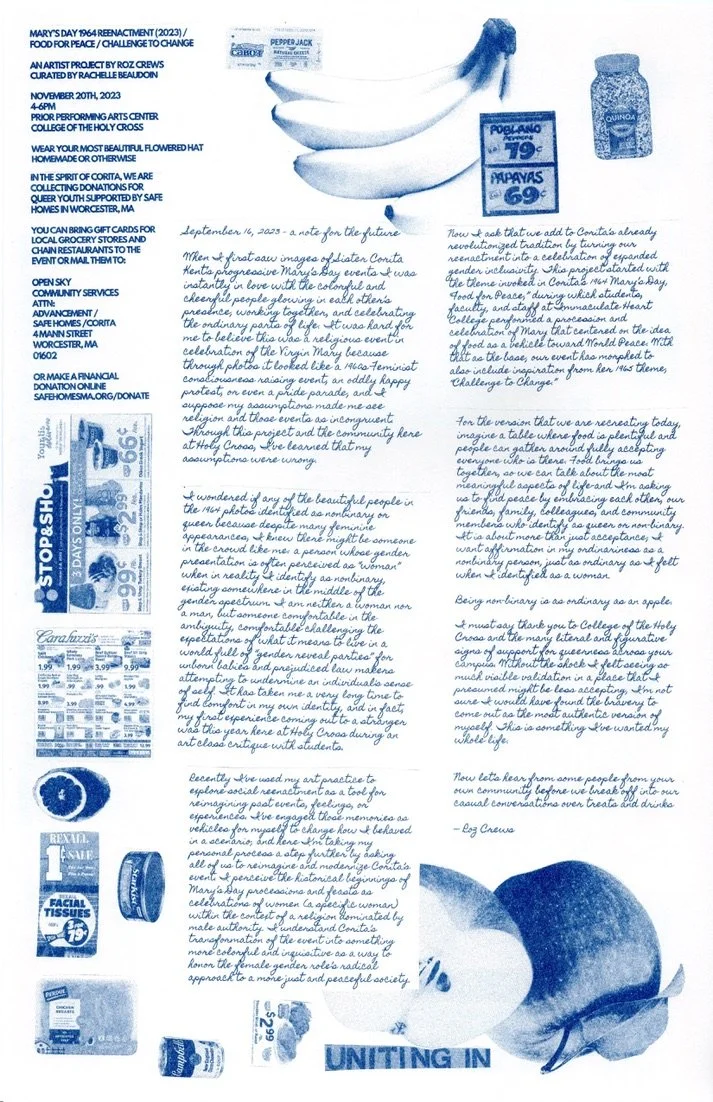 MARY'S DAY 1964 REENACTMENT (2023) /
FOOD FOR PEACE / CHALLENGE TO CHANGE
AN ARTIST PROJECT BY ROZ CREWS
CURATED BY RACHELLE BEAUDOIN
NOVEMBER 20TH, 2023
4-6PM
PRIOR PERFORMING ARTS CENTER
COLLEGE OF THE HOLY CROSS
WEAR YOUR MOST BEAUTIFUL FLOWERED HAT
HOMEMADE OR OTHERWISE
IN THE SPIRIT OF CORITA, WE ARE
COLLECTING DONATIONS FOR
QUEER YOUTH SUPPORTED BY SAFE
HOMES IN WORCESTER, MA
YOU CAN BRING GIFT CARDS FOR
LOCAL GROCERY STORES AND
CHAIN RESTAURANTS TO THE
EVENT OR MAIL THEM TO:
OPEN SKY
COMMUNITY SERVICES
ATTN:
ADVANCEMENT /
SAFE HOMES /CORITA
4 MANN STREET
WORCESTER, MA
01602
OR MAKE A FINANCIAL
DONATION ONLINE
SAFEHOMESMA.ORG/DONATE
CABOT
PEPPER JACK
POBLANO
PEPPERS
79¢
PAPAYAS
69¢
QUINOA
September 16, 2023 - a note for the future
When I first saw images of Sister Corita
Kent's progressive Mary's Day events I was
instantly in love with the colorful and
cheerful people glowing in each other's
presence, working together, and celebrating
the ordinary parts of life. It was hard for
me to believe this was a religious event in
celebration of the Virgin Mary because
through photos it looked like a 1960s Feminist
consciousness raising event, an oddly happy
protest, or even a pride parade, and I
suppose my assumptions made me see
religion and those events as incongruent.
Through this project and the community here
at Holy Cross, I've learned that my
assumptions were wrong.
I wondered if any of the beautiful people in
the 1964 photos identified as nonbinary or
queer because despite many feminine
appearances, I knew there might be someone
in the crowd like me: a person whose gender
presentation is often perceived as "woman"
when in reality I identify as nonbinary,
existing somewhere in the middle of the
gender spectrum. I am neither a woman nor
a man, but someone comfortable in the
ambiguity, comfortable challenging the
expectations of what it means to live in a
world full of "gender reveal parties" for
unborn babies and prejudiced law makers
attempting to undermine an individual's sense
of self. It has taken me a very long time to
find comfort in my own identity, and in fact,
my first experience coming out to a stranger
was this year here at Holy Cross during an
art class critique with students.
Recently I've used my art practice to
explore social reenactment as a tool for
reimagining past events, feelings, or
experiences. I've engaged those memories as
vehicles for myself to change how I behaved
in a scenario, and here I'm taking my
personal process a step further by asking
all of us to reimagine and modernize Corita's
event. I perceive the historical beginnings of
Mary's Day processions and feasts as
celebrations of women (a specific woman)
within the context of a religion dominated by
male authority. I understand Corita's
transformation of the event into something
more colorful and inquisitive as a way to
honor the female gender role's radical
approach to a more just and peaceful society.
Now I ask that we add to Corita's already
revolutionized tradition by turning our
reenactment into a celebration of expanded
gender inclusivity. This project started with
the theme invoked in Corita's 1964 Mary's Day,
"Food for Peace," during which students,
faculty, and staff at Immaculate Heart
College performed a procession and
celebration of Mary that centered on the idea
of food as a vehicle toward World Peace. With
that as the base, our event has morphed to
also include inspiration from her 1965 theme,
"Challenge to Change."
For the version that we are recreating today,
imagine a table where food is plentiful and
people can gather around fully accepting
everyone who is there. Food brings us
together, so we can talk about the most
meaningful aspects of life-and I'm asking
us to find peace by embracing each other, our
friends, family, colleagues, and community
members who identify as queer or non-binary.
It is about more than just acceptance; I
want affirmation in my ordinariness as a
nonbinary person, just as ordinary as I felt
when I identified as a woman.
Being non-binary is as ordinary as an apple.
I must say thank you to College of the Holy
Cross and the many literal and figurative
signs of support for queerness across your
campus. Without the shock I felt seeing so
much visible validation in a place that I
presumed might be less accepting, I'm not
sure I would have found the bravery to
come out as the most authentic version of
myself. This is something I've wanted my
whole life.
Now let's hear from some people from your
own community before we break off into our
casual conversations over treats and drinks
- Roz Crews
STOP&SHO
3 DAYS ONLY!
66¢
$2.99
99¢
Caraluzzi's
1.99
REXALL
1¢ SALE
FACIAL
TISSUES
79
StarKist
PERDUE
Campbell's
$2.99
UNITING IN